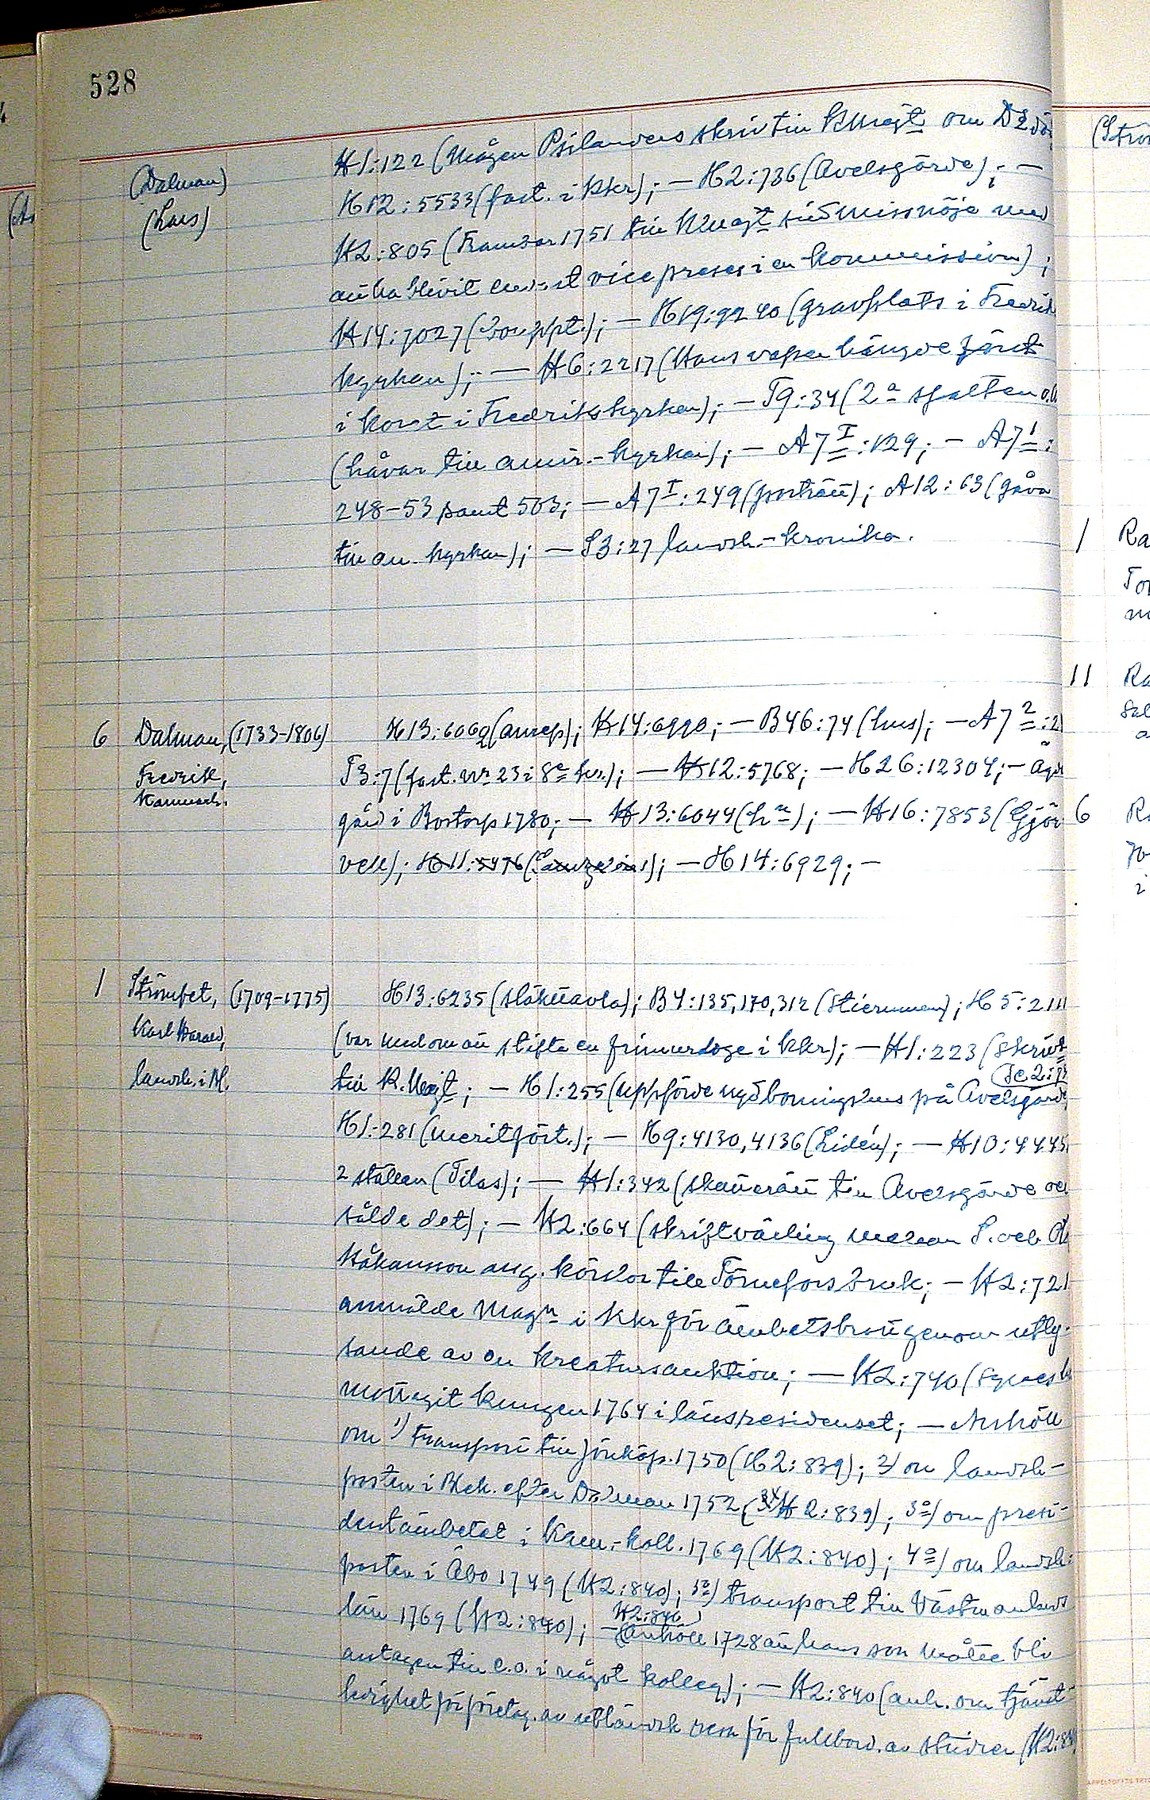 528
(Dalman)
(Lars)
H1:122 (Mågen Psilanders skriv till KMajt om D:s dö
H12:5533 (fast. i kkr); — H2:736 (Avelsgärde); —
H2:805 (Framför 1751 till KMajt sitt missnöje med
att ha blivit endast vicepreses i en kommission);
H14:7027 (Bouppt.); — H19:9240 (gravplats i Fredriks
kyrkan); — H6:2217 (Hans vapen hängde förut
i koret i Fredrikskyrkan); — T9:34 (2a spalten
(håvar till amir.-kyrkan); — A7I:129; — A7I:
248-53 samt 503; — A7I:249 (porträtt); A12:63 (gåva
till am. kyrkan); — S3:27 landsh.-kronika.
6 Dalman, (1733-1806) H13:6069 (anrep); H14:6990; — B46:74 (hus); — A72:2
Fredrik, T3:7 (fast. nr 23 i 8e kv.); — H12:5768; — H26:12304; — äg
Kammarh. gård i Bostorp 1780; — H13:6044 (hn); — H16:7853 (Gjör
vell); H11:5476 — H14:6929; —
1 Strömfelt, (1709-1775) H13:6235 (släkttavla); B4:135,170,312 (Stierneman); H5:211
Karl Harald, (var med om att stifta en frimurarloge i kkr); — H1:223 (skriv
landsh. i Bl. till K.Majt; — H1:255 (uppförde ny åboningshus på Avelsgärde
H1:281 (meritfört.); — H9:4130,4136 (Lidén); — H10:4445
2 ställen (Tilas); — H1:342 (skatterätt till Avelsgärde oc
sålde det); — H2:664 (skriftväxling mellan S. och
Håkansson ang. körslor till Törnefors bruk; — H2:721
anmälde Magn i kkr för ämbetsbrott genom utly-
sande av en kreatursauktion; — H2:740 (Synes
mottagit kungen 1764 i länsresidenset; — Anhöll
om 1) transport till Jönköp. 1750 (H2:839); 2) om landsh-
posten i Blek. efter Dalman 1752 (H2:839); 3o) om presi-
dentämbetet i Kam.-koll. 1769 (H2:840); 4o) om landsh:
posten i Åbo 1749 (H2:840); 5o) transport till Västmanlands
län 1769 (H2:840); — H2:840 (anhöll 1728 att hans son måtte bli
antagen till e.o. i något kolleg.); — H2:840 (anh. om tjänst-
ledighet för företag. av utländsk resa för fullbord. av studier (H2:84
1 Ra
11 Ra
6